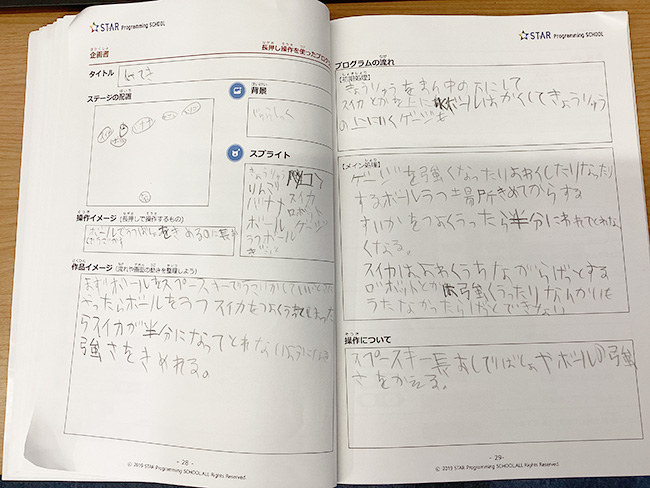 STAR Programming SCHOOL
きかくしょ
企画書
ながお そうさ
長押し操作を使ったプログラ
タイトル
ステージの配置
はいち
はいけい
背景
じゅらしっく
スプライト
きょうりゅう
りんご スイカ
バナナ ロボット
ボール ゲージ
ラブボール
操作イメージ (長押しで操作するもの)
ボールでうつばしょをきめるのに長
作品イメージ (流れや画面の動きを整理しよう)
まずボールをスペースキーでうごかしていいところ
きったらボールをうつスイカをつよくうってしまった
らスイカが半分になってとれない
強さをきめれる。
- 28 -
© 2019 STAR Programming SCHOOL.ALL Rights Reserved.
STAR Programming SCHOOL
プログラムの流れ
【初期処理】
きょうりゅうをまん中の下にして
スイカとかを上にボールはかくしてきょうりゅう
の上におくゲージも
【メイン処理】
ゲージを強くなったりよわくしたりなったり
するボールうつ場所きめてからする
すいかをつよくうったら半分にわれてとれな
くなる。
スイカはよわくうちながらげっとする
ロボットとかは強くうったりなんかいも
うたなかったらげっとできない
操作について
スペースキー長おしでばしょやボールの強
さをかえる。
- 29-
© 2019 STAR Programming SCHOOL.ALL Rights Reserved.